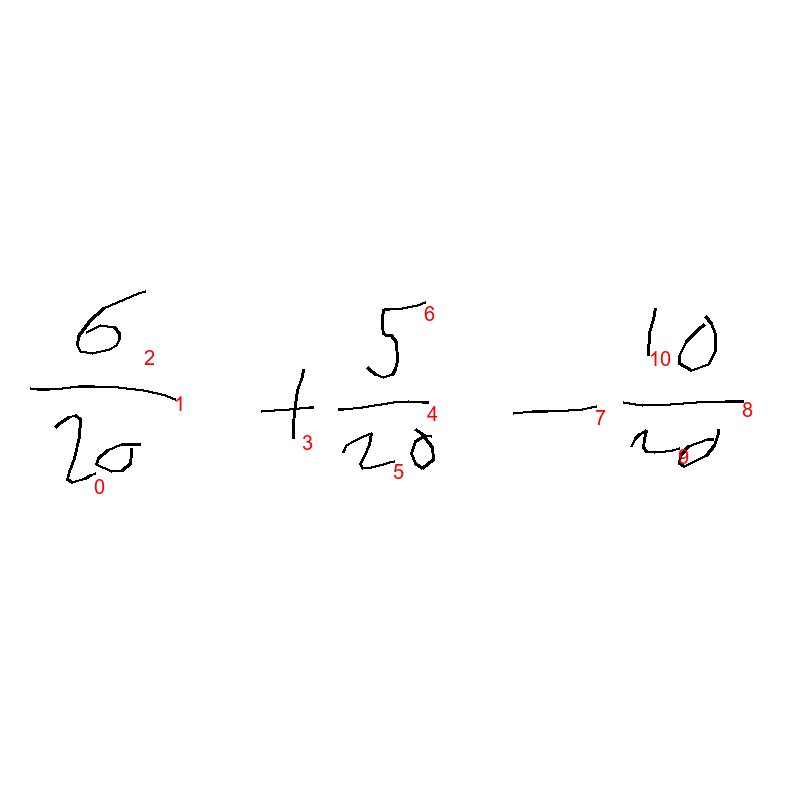 6/20 + 5/20 − 10/20
2
1
3
6
4
5
0
7
10
8
9